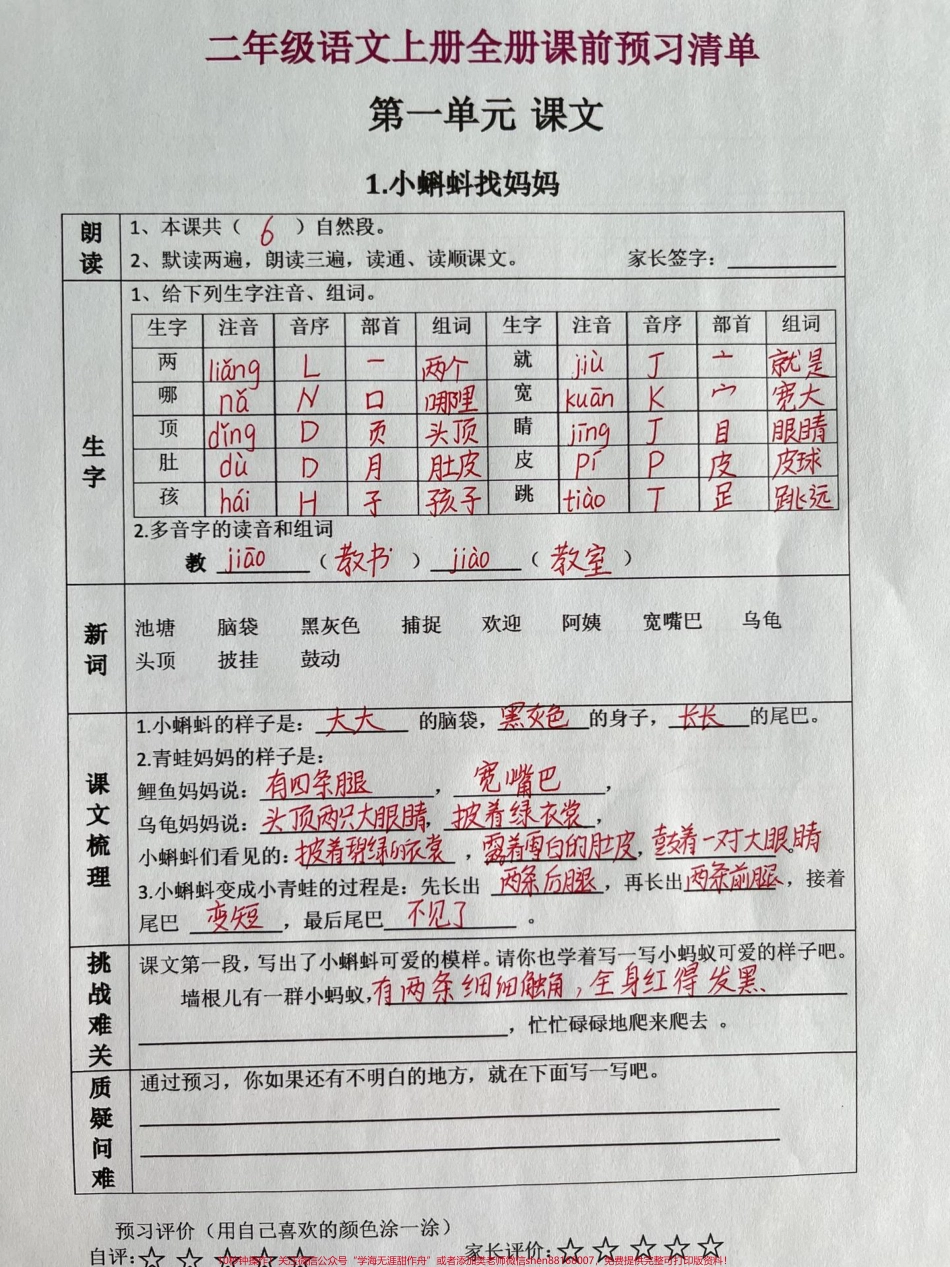 二年级语文上册全册课前预习清单
第一单元 课文
1.小蝌蚪找妈妈
朗读
1、本课共（ 6 ）自然段。
2、默读两遍，朗读三遍，读通、读顺课文。 家长签字：
生字
1、给下列生字注音、组词。
生字 注音 音序 部首 组词 生字 注音 音序 部首 组词
两 liǎng L 一 两个 就 jiù J 亠 就是
哪 nǎ N 口 哪里 宽 kuān K 宀 宽大
顶 dǐng D 页 头顶 睛 jīng J 目 眼睛
肚 dù D 月 肚皮 皮 pí P 皮 皮球
孩 hái H 子 孩子 跳 tiào T 足 跳远
2.多音字的读音和组词
教 jiāo （ 教书 ） jiào （ 教室 ）
新词
池塘 脑袋 黑灰色 捕捉 欢迎 阿姨 宽嘴巴 乌龟
头顶 披挂 鼓动
课文梳理
1.小蝌蚪的样子是： 大大 的脑袋， 黑灰色 的身子， 长长 的尾巴。
2.青蛙妈妈的样子是：
鲤鱼妈妈说： 有四条腿 ， 宽嘴巴 ，
乌龟妈妈说： 头顶两只大眼睛， 披着绿衣裳 ，
小蝌蚪们看见的： 披着碧绿的衣裳 ， 露着雪白的肚皮， 鼓着一对大眼睛 。
3.小蝌蚪变成小青蛙的过程是：先长出 两条后腿 ，再长出 两条前腿 ，接着
尾巴 变短 ，最后尾巴 不见了 。
挑战难关
课文第一段，写出了小蝌蚪可爱的模样。请你也学着写一写小蚂蚁可爱的样子吧。
墙根儿有一群小蚂蚁， 有两条细细触角，全身红得发黑
，忙忙碌碌地爬来爬去 。
质疑问难
通过预习，你如果还有不明白的地方，就在下面写一写吧。
预习评价（用自己喜欢的颜色涂一涂）
自评：☆ ☆ ☆ ☆ ☆ 家长评价：☆ ☆ ☆ ☆ ☆
关注微信公众号“学海无涯甜作舟”或者添加奥老师微信shen88168007，免费领完整可打印版资料！